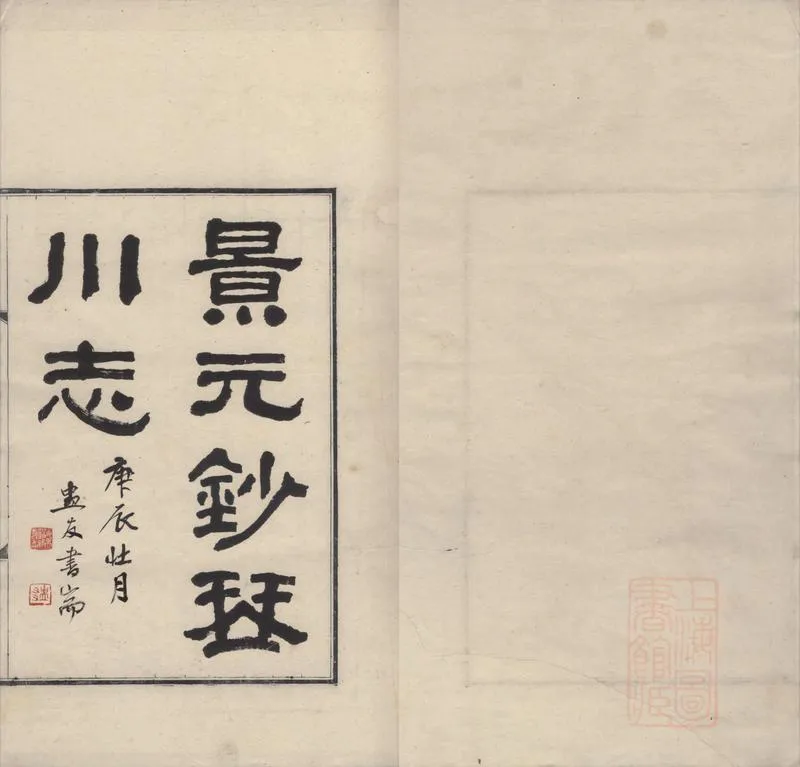 景元鈔琴
川志
庚辰壯月
盅友書耑
上海圖
書館臧